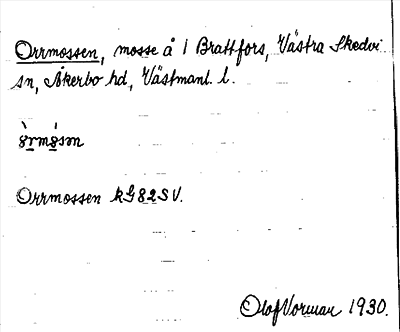 Orrmossen, mosse å 1 Brattfors, Västra Skedvi
sn, Åkerbo hd, Västmanl. l.
Orrmossen kG82SV.
Olof Vorman 1930.